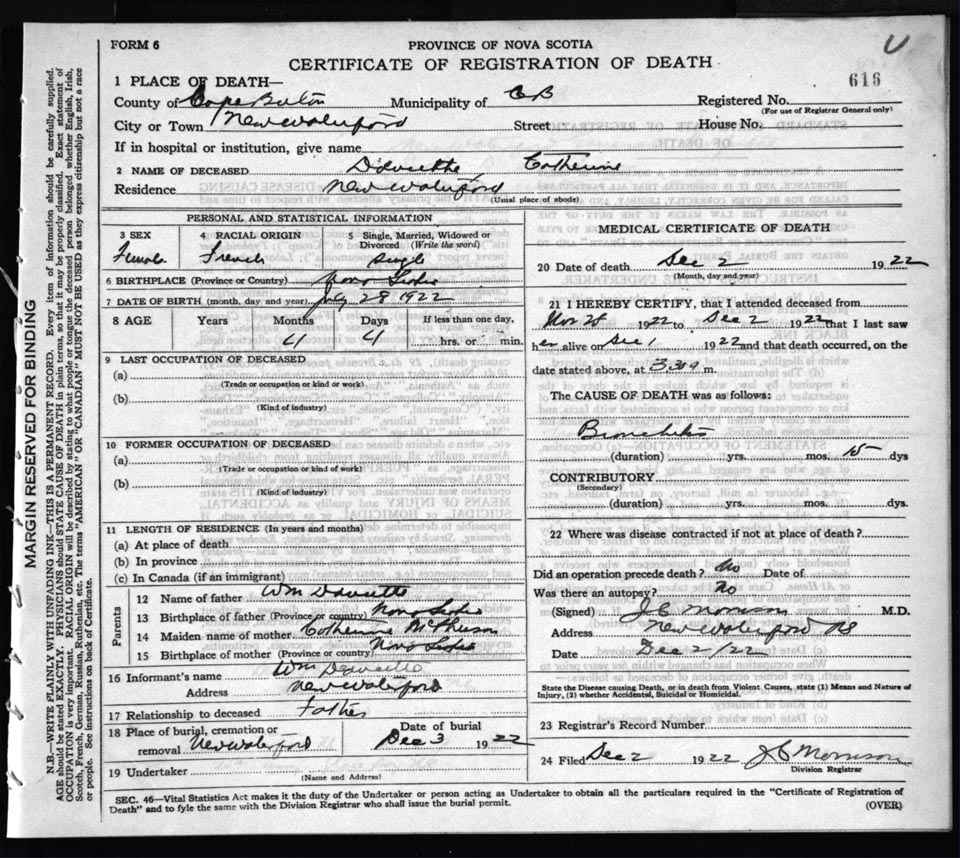 FORM 6
PROVINCE OF NOVA SCOTIA
CERTIFICATE OF REGISTRATION OF DEATH
616
1 PLACE OF DEATH—
County of Cape Breton Municipality of C B Registered No.
(For use of Registrar General only)
City or Town New Waterford Street House No.
If in hospital or institution, give name
2 NAME OF DECEASED Catherine
Residence New Waterford
(Usual place of abode)
PERSONAL AND STATISTICAL INFORMATION
3 SEX 4 RACIAL ORIGIN 5 Single, Married, Widowed or Divorced (Write the word)
Female French Single
6 BIRTHPLACE (Province or Country) Nova Scotia
7 DATE OF BIRTH (month, day and year) July 28 1922
8 AGE Years Months Days If less than one day,
4 4 hrs. or min.
9 LAST OCCUPATION OF DECEASED
(a)
(Trade or occupation or kind or work)
(b)
(Kind of industry)
10 FORMER OCCUPATION OF DECEASED
(a)
(Trade or occupation or kind of work)
(b)
(Kind of industry)
11 LENGTH OF RESIDENCE (In years and months)
(a) At place of death
(b) In province
(c) In Canada (if an immigrant)
Parents
12 Name of father Wm
13 Birthplace of father (Province or country) Nova Scotia
14 Maiden name of mother Catherine McPherson
15 Birthplace of mother (Province or country) Nova Scotia
16 Informant's name Wm
Address New Waterford
17 Relationship to deceased Father
18 Place of burial, cremation or removal New Waterford Date of burial Dec 3 1922
19 Undertaker
(Name and Address)
MEDICAL CERTIFICATE OF DEATH
20 Date of death Dec 2 1922
(Month, day and year)
21 I HEREBY CERTIFY, that I attended deceased from
Nov 28 1922 to Dec 2 1922 that I last saw
her alive on Dec 1 1922 and that death occurred, on the
date stated above, at m.
The CAUSE OF DEATH was as follows:
Bronchitis
(duration) yrs. mos. 15 dys
CONTRIBUTORY
(Secondary)
(duration) yrs. mos. dys.
22 Where was disease contracted if not at place of death?
Did an operation precede death? No Date of
Was there an autopsy? No
(Signed) J C Morrison M.D.
Address New Waterford NS
Date Dec 2/22
State the Disease causing Death, or in death from Violent Causes, state (1) Means and Nature of
Injury, (2) whether Accidental, Suicidal or Homicidal.
23 Registrar's Record Number
24 Filed Dec 2 1922 J C Morrison
Division Registrar
SEC. 46—Vital Statistics Act makes it the duty of the Undertaker or person acting as Undertaker to obtain all the particulars required in the "Certificate of Registration of
Death" and to fyle the same with the Division Registrar who shall issue the burial permit.
(OVER)
MARGIN RESERVED FOR BINDING
N.B.—WRITE PLAINLY WITH UNFADING INK—THIS IS A PERMANENT RECORD. Every item of information should be carefully supplied.
AGE should be stated EXACTLY. PHYSICIANS should STATE CAUSE OF DEATH in plain terms, so that it may be properly classified. Exact statement of
OCCUPATION is very important. RACIAL ORIGIN will be described by stating to what people or tongue the deceased person belonged whether English, Irish,
Scotch, French, German, Russian, Ruthenian, etc. The terms "AMERICAN" OR "CANADIAN" MUST NOT BE USED as they express citizenship but not a race
or people. See instructions on back of Certificate.